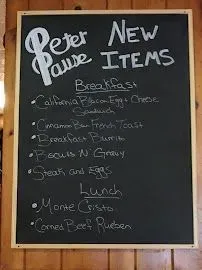 Peter Pause NEW ITEMS
Breakfast
• California Bacon Egg & Cheese
Sandwich
• Cinnamon Bun French Toast
• Breakfast Burrito
• Biscuits N' Gravy
• Steak and Eggs
Lunch
• Monte Cristo
• Corned Beef Rueben